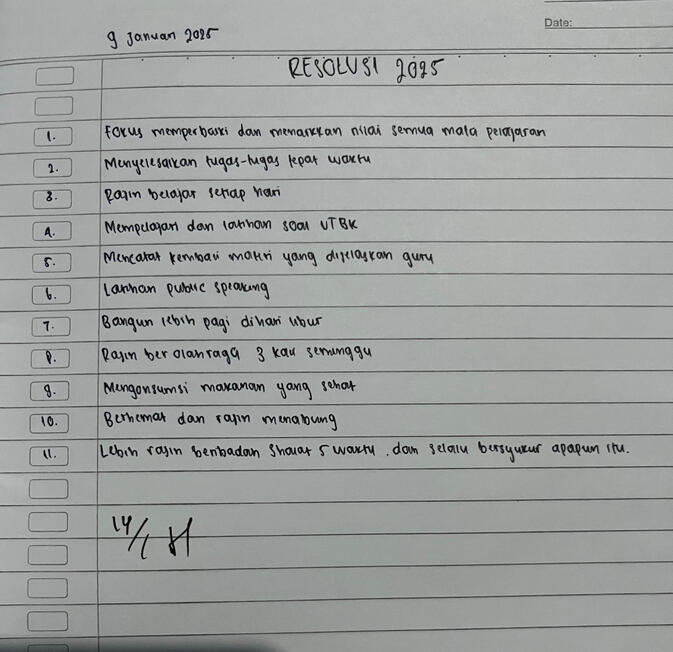 Date:
9 Januari 2025
RESOLUSI 2025
1. Fokus memperbaiki dan menaikkan nilai semua mata pelajaran
2. Menyelesaikan tugas-tugas tepat waktu
3. Rajin belajar setiap hari
4. Mempelajari dan latihan soal UTBK
5. Mencatat kembali materi yang dijelaskan guru
6. Latihan public speaking
7. Bangun lebih pagi dihari libur
8. Rajin ber olahraga 3 kali seminggu
9. Mengonsumsi makanan yang sehat
10. Berhemat dan rajin menabung
11. Lebih rajin beribadah shalat 5 waktu, dan selalu bersyukur apapun itu.
14/1